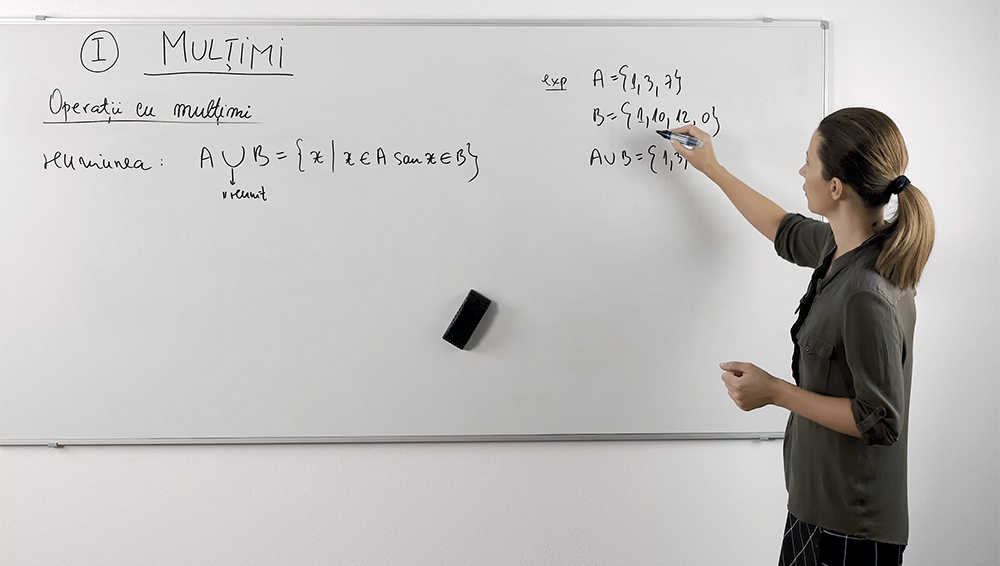 I MULȚIMI
Operații cu mulțimi
reuniunea : A ∪ B = { x | x ∈ A sau x ∈ B }
reunit
exp A = {1, 3, 7}
B = {1, 10, 12, 0}
A ∪ B = {1, 3,